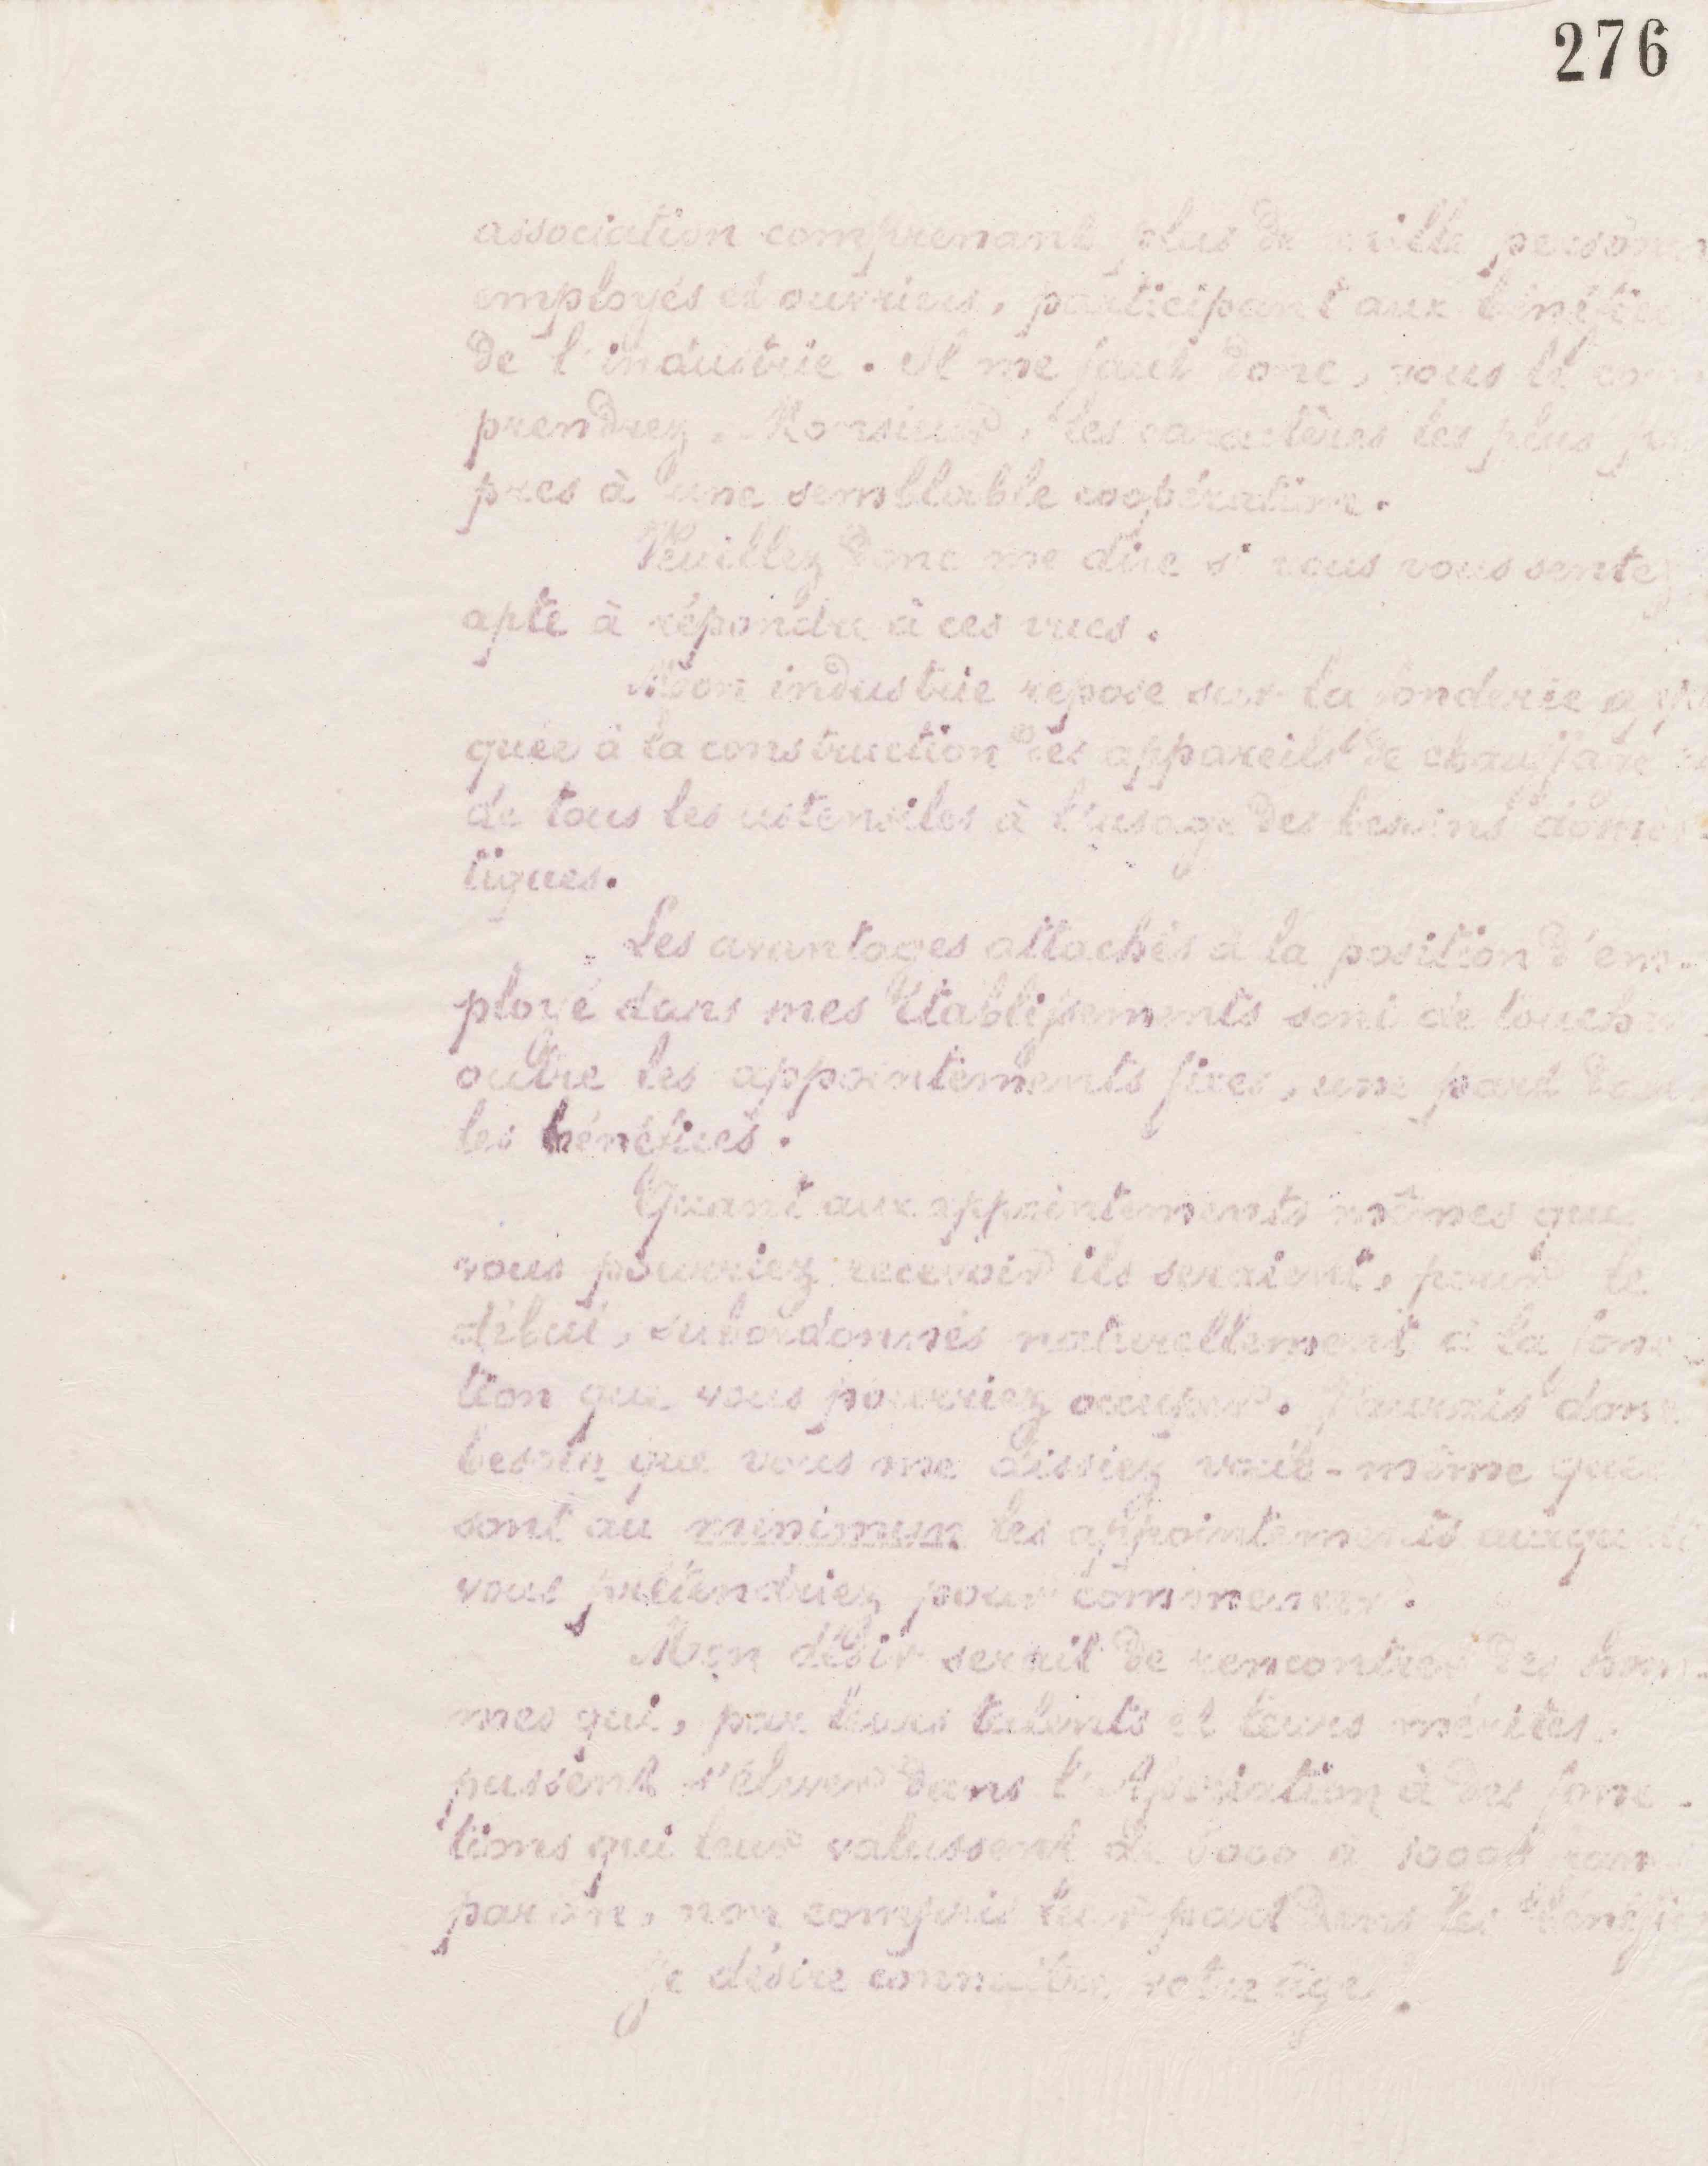 276
association comprenant plus de mille person
employés et ouvriers, participant aux bénéfice
de l'industrie. Il me faut donc, vous le com
prendrez, Monsieur, les caractères les plus pro
pres à une semblable coopération.
Veuillez donc me dire si vous vous sentez
apte à répondre à ces vues.
Mon industrie repose sur la fonderie appli
quée à la construction des appareils de chauffage
de tous les ustensiles à l'usage des besoins domes-
tiques.
Les avantages attachés à la position d'em-
ployé dans mes Etablissements sont de toucher
outre les appointements fixes, une part dans
les bénéfices.
Quant aux appointements mêmes que
vous pourriez recevoir ils seraient, pour le
début, subordonnés naturellement à la fonc-
tion que vous pourriez occuper. J'aurais donc
besoin que vous me dissiez vous-même quels
sont au minimum les appointements auxquels
vous prétendriez pour commencer.
Mon désir serait de rencontrer des hom-
mes qui, par leurs talents et leurs mérites,
pussent s'élever dans l'Association à des fonc-
tions qui leur valussent de 5000 à 10000 fran
par an, non compris leur part dans les bénéfi
Je désire connaître votre âge.